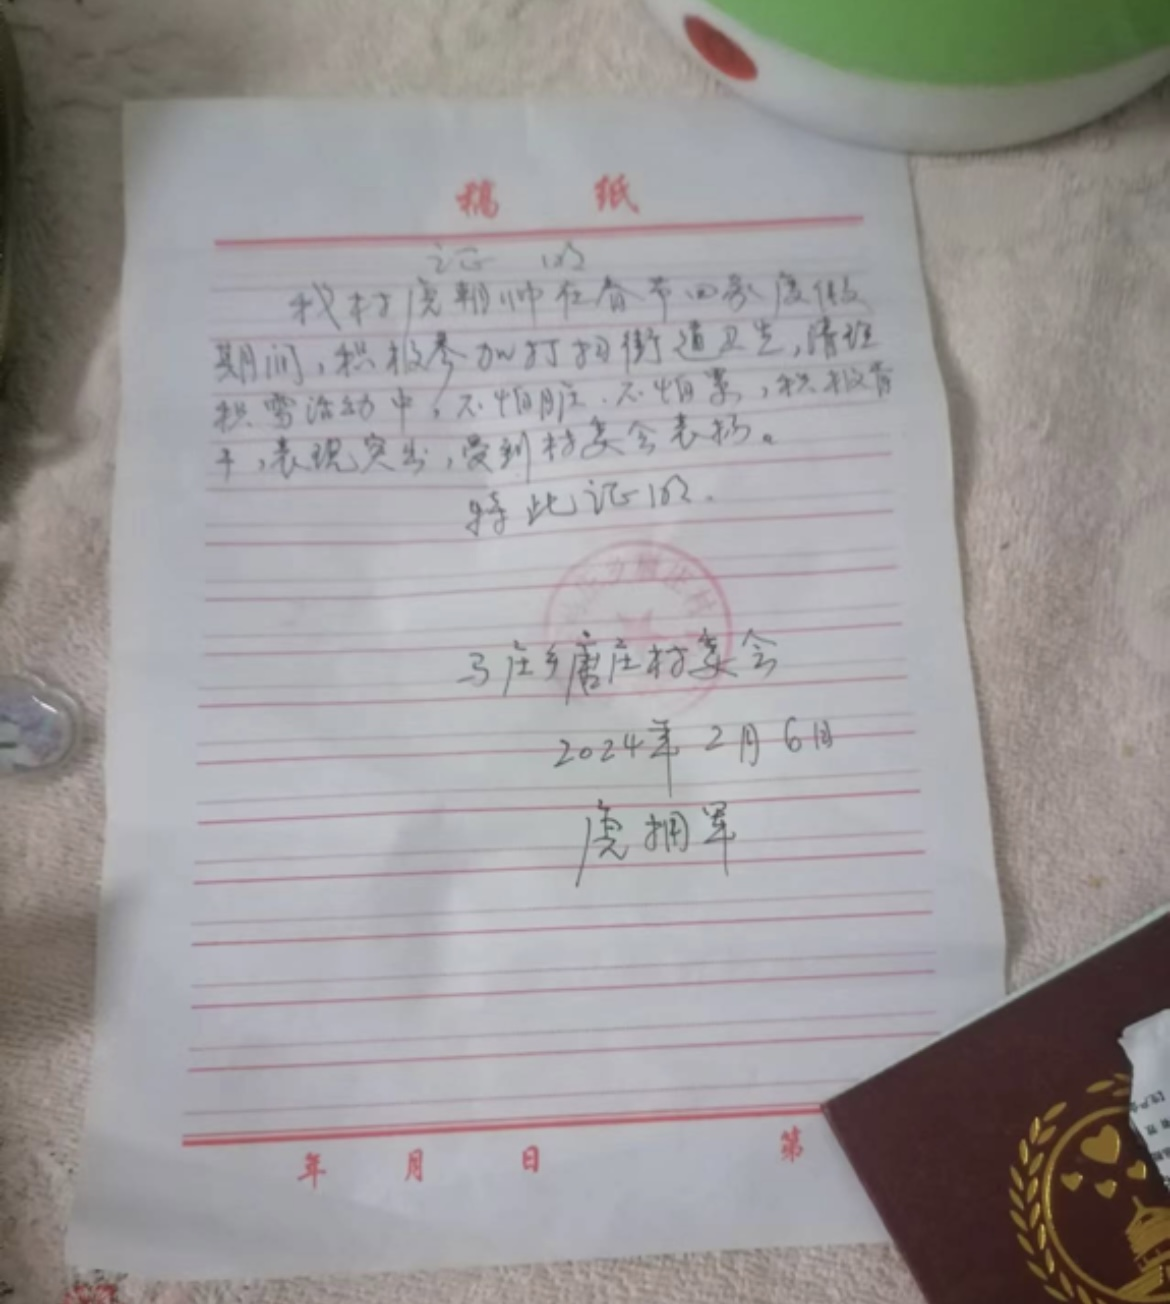 稿 纸
证 明
我村虎朝帅在春节回家度假
期间，积极参加打扫街道卫生，清理
积雪活动中，不怕脏、不怕累，积极肯
干，表现突出，受到村委会表扬。
特此证明.
马庄乡唐庄村委会
2024年2月6日
虎拥军
年 月 日 第